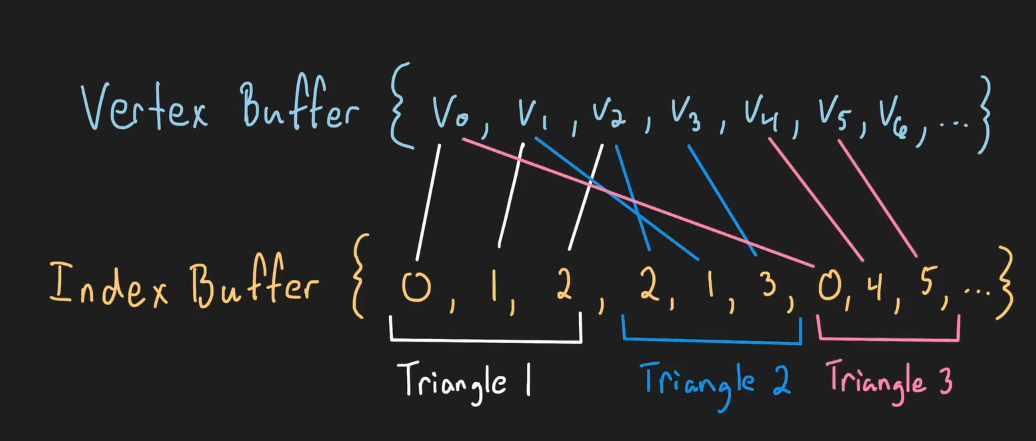 Vertex Buffer { V0, V1, V2, V3, V4, V5, V6, ... }
Index Buffer { 0, 1, 2, 2, 1, 3, 0, 4, 5, ... }
Triangle 1 Triangle 2 Triangle 3